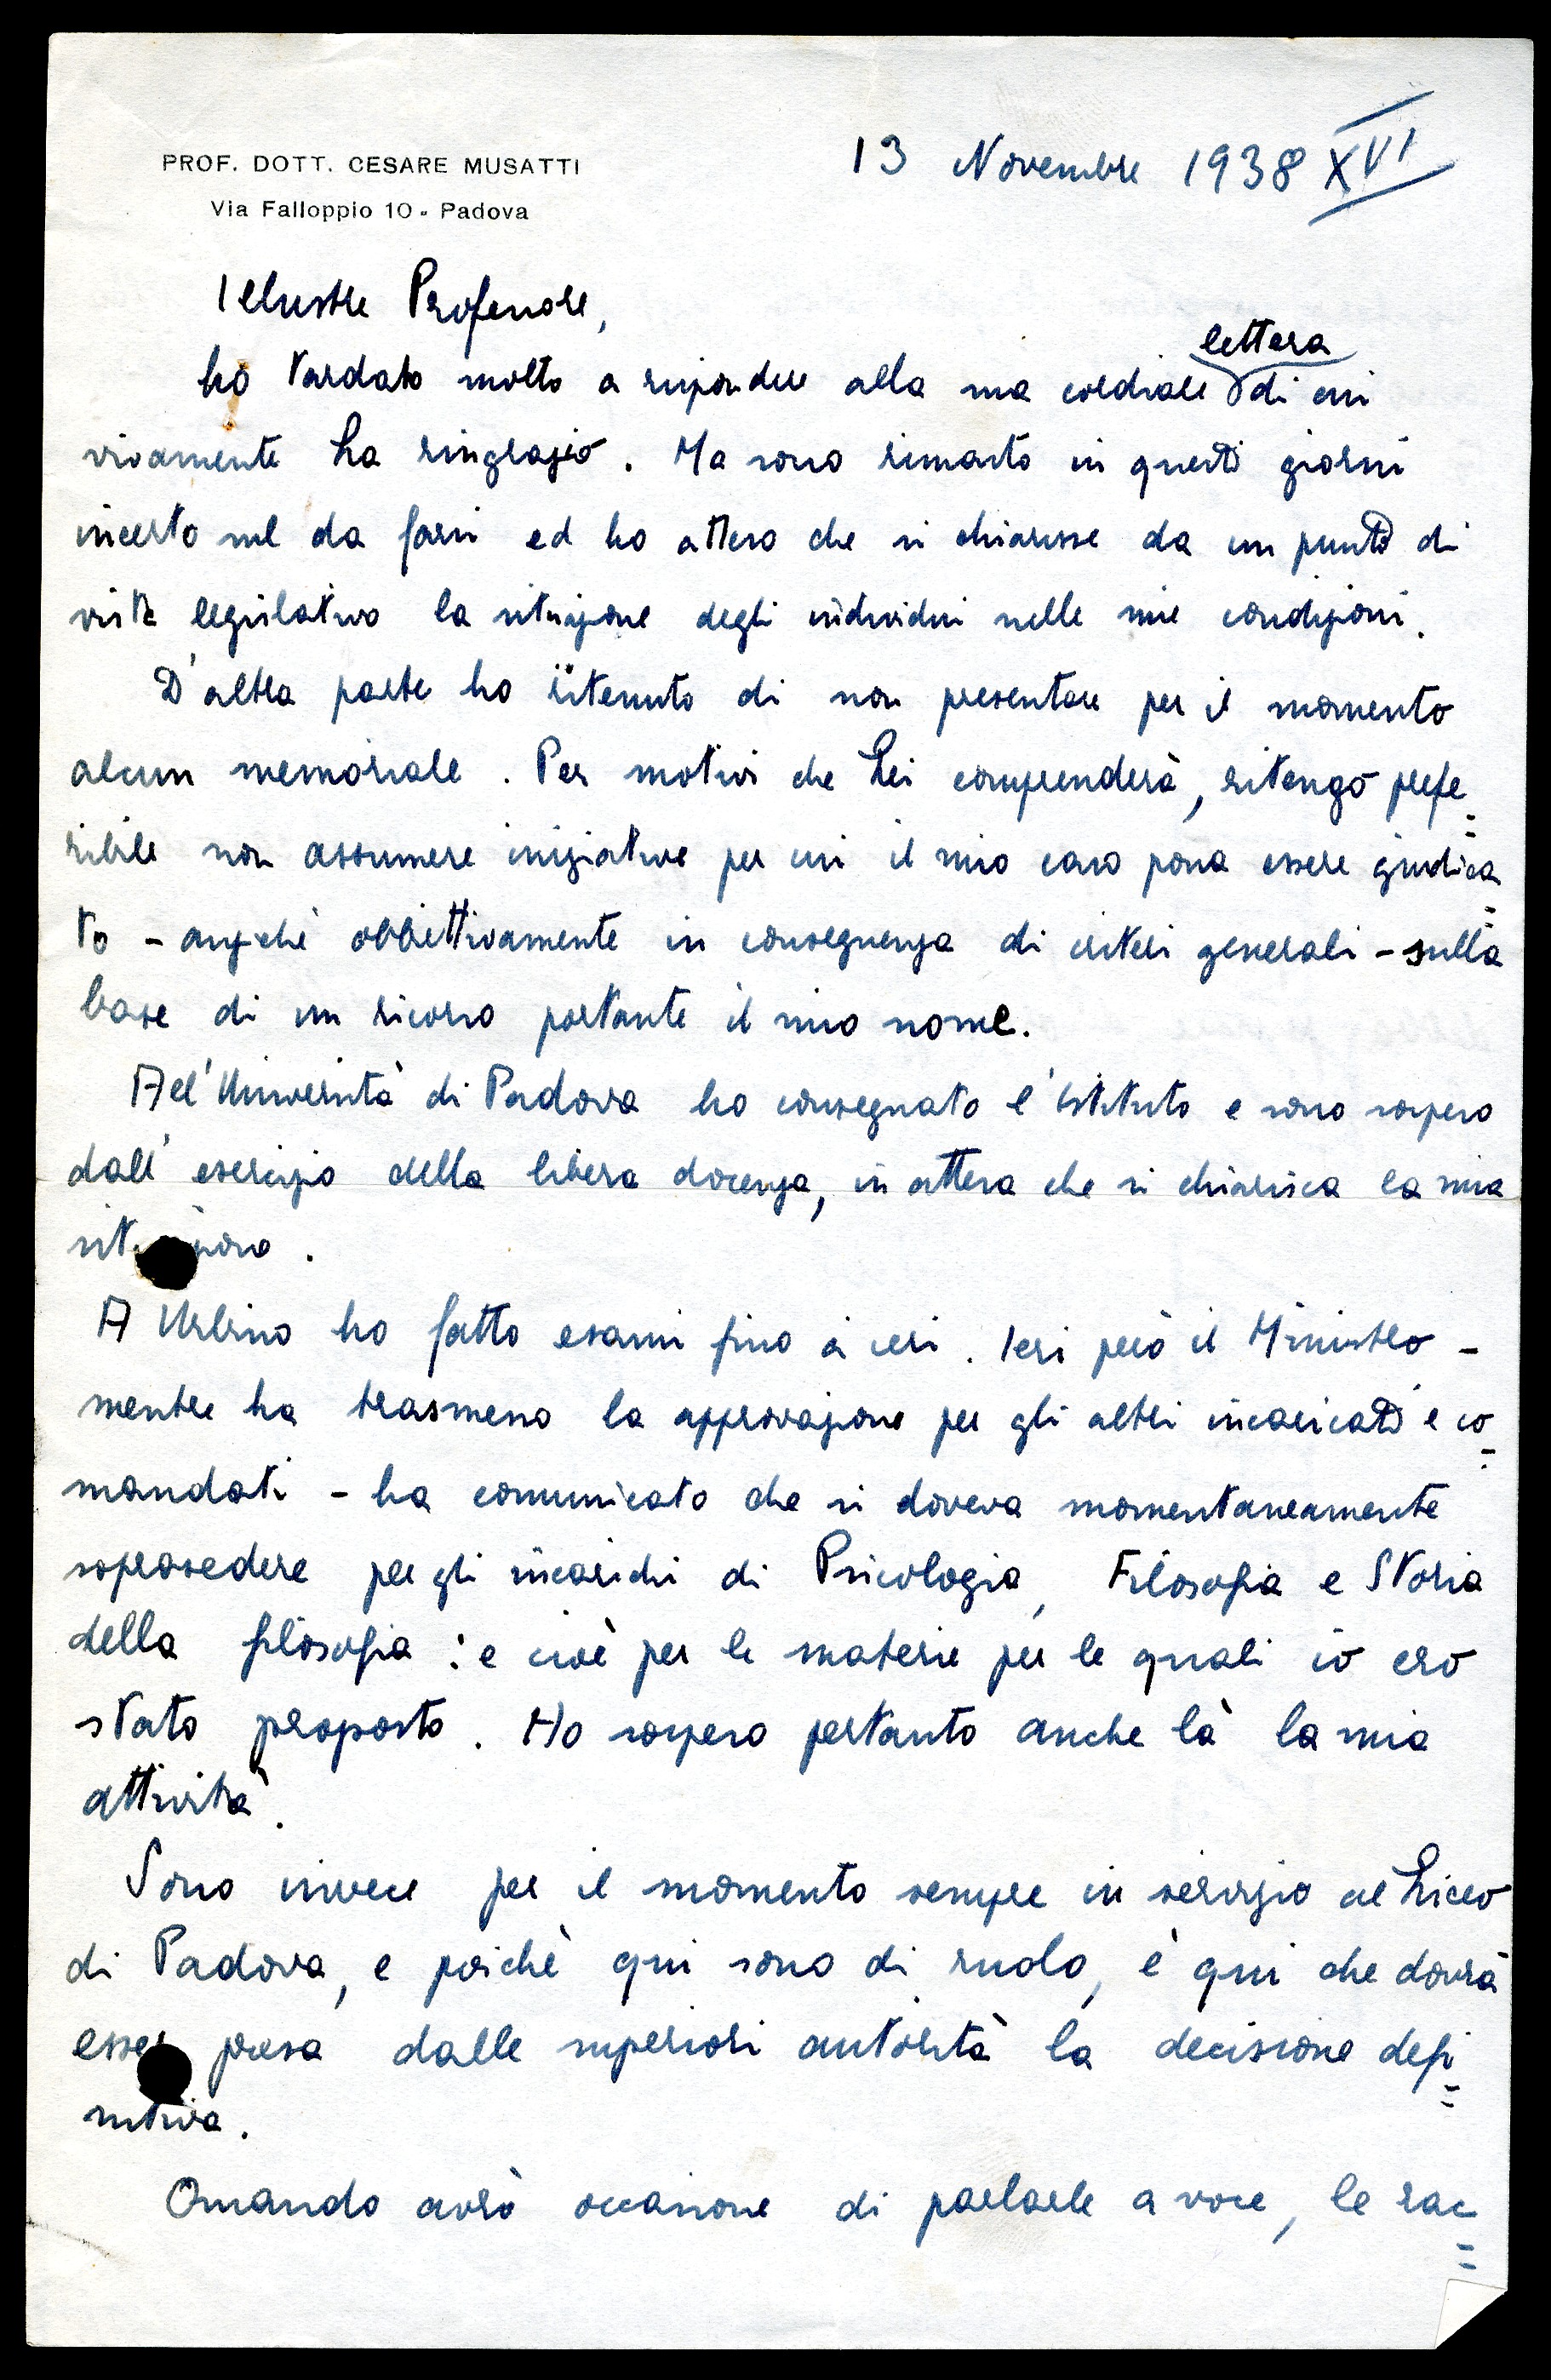 PROF. DOTT. CESARE MUSATTI
Via Falloppio 10 - Padova
13 Novembre 1938 XVI
Illustre Professore,
lettera
ho tardato molto a rispondere alla sua cordiale di cui
vivamente La ringrazio. Ma sono rimasto in questi giorni
incerto sul da farsi ed ho atteso che si chiarisse da un punto di
vista legislativo la situazione degli individui nelle mie condizioni.
D'altra parte ho ritenuto di non presentare per il momento
alcun memoriale. Per motivi che Lei comprenderà, ritengo prefe=
ribile non assumere iniziative per cui il mio caso possa essere giudica=
to - anzichè obbiettivamente in conseguenza di criteri generali - sulla
base di un ricorso portante il mio nome.
All'Università di Padova ho consegnato l'istituto e sono sospeso
dall'esercizio della libera docenza, in attesa che si chiarisca la mia
situazione.
A Urbino ho fatto esami fino a ieri. Ieri però il Ministro -
mentre ha trasmesso la approvazione per gli altri incaricati e co=
mandati - ha comunicato che si doveva momentaneamente
soprasedere per gli incarichi di Psicologia, Filosofia e Storia
della filosofia: e cioè per le materie per le quali io ero
stato proposto. Ho sospeso pertanto anche là la mia
attività.
Sono invece per il momento sempre in servizio al Liceo
di Padova, e poichè qui sono di ruolo, è qui che dovrà
esser presa dalle superiori autorità la decisione defi=
nitiva.
Quando avrò occasione di parlarle a voce, le rac=